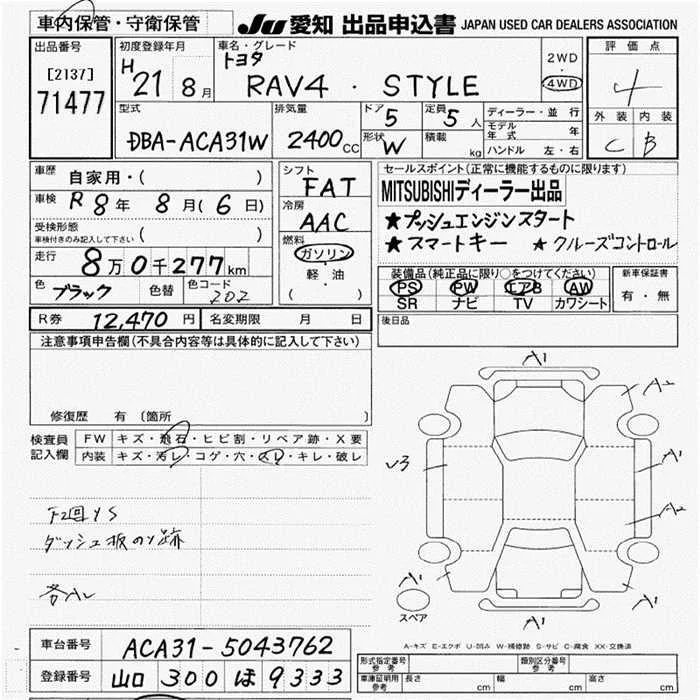 車内保管・守衛保管 JU 愛知 出品申込書 JAPAN USED CAR DEALERS ASSOCIATION
出品番号 初度登録年月 車名・グレード 評価点
[2137] H 21 8月 トヨタ 2WD
71477 RAV4 ・ STYLE 4WD 4
型式 排気量 ドア 5 定員 5人 ディーラー・並行 外装 内装
DBA-ACA31W 2400cc 形状 W 積載 kg モデル年式 年 C B
ハンドル 左・右
車歴 自家用・( ) シフト FAT セールスポイント(正常に機能するものに限ります)
車検 R8年 8月(6日) 冷房 AAC MITSUBISHIディーラー出品
受検形態 ( ) ★プッシュエンジンスタート
車検付きのみ記入して下さい 燃料 ガソリン ★スマートキー ★クルーズコントロール
走行 8万0千277km 軽・油 装備品(純正品に限り○をつけてください) 新車保証書
色 ブラック 色替 色コード 202 ( ) PS PW エアB AW 有・無
SR ナビ TV カワシート
R券 12,470円 名変期限 月 日 後日品
注意事項申告欄(不具合内容等は具体的に記入して下さい)
修復歴 有 (箇所 )
検査員 FW キズ・飛石・ヒビ割・リペア跡・X要
記入欄 内装 キズ・汚レ・コゲ・穴・スレ・キレ・破レ
A1
A2
A1
A2
A1
A1
A1
スペア
A-キズ E-エクボ U-凹み W-補修跡 S-サビ C-腐食 XX-交換済
車台番号 ACA31-5043762 形式指定番号 参考 類別区分番号 参考
登録番号 山口 300 ほ 9333 車庫証明用 参考 長さ cm 幅 cm 高さ cm